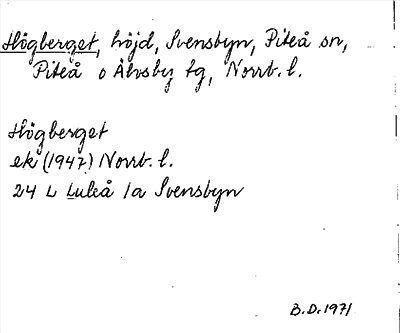 Högberget, höjd, Svensbyn, Piteå sn,
Piteå o Älvsby tg, Norrb. l.
Högberget
ek (1947) Norrb. l.
24 L Luleå 1a Svensbyn
B.D. 1971